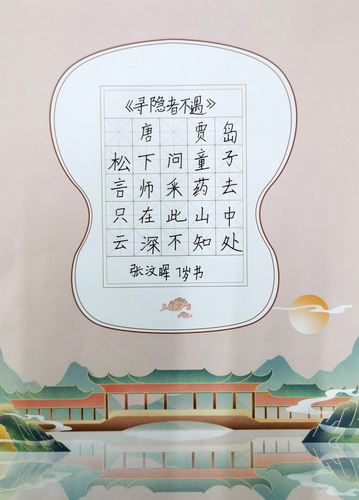 《寻隐者不遇》
唐 贾岛
松下问童子
言师采药去
只在此山中
云深不知处
张汶晖 7岁书